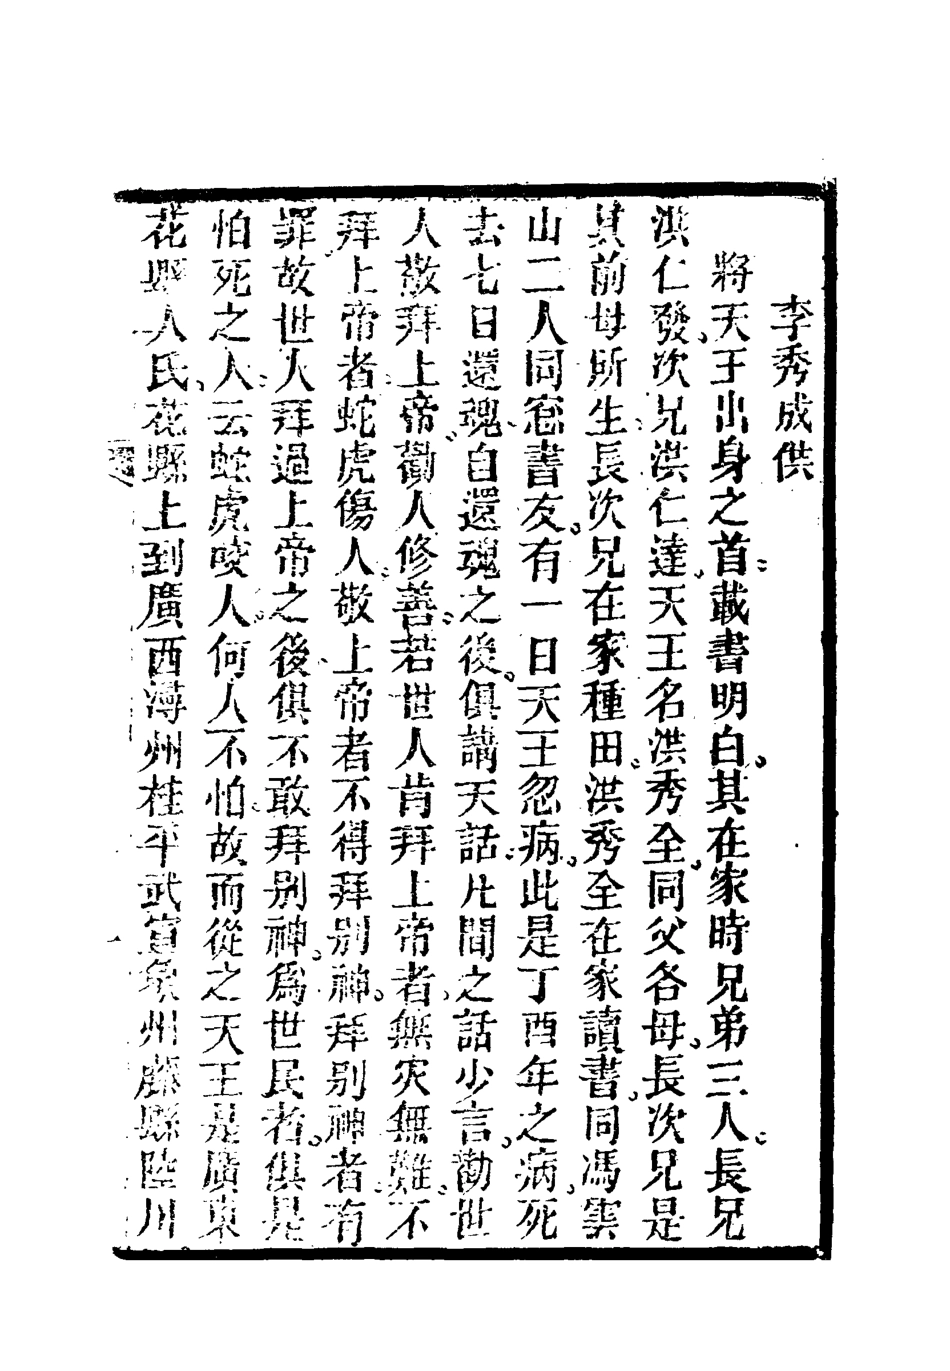 李秀成供
將天王出身之首載書明白其在家時兄弟三人長兄
洪仁發次兄洪仁達天王名洪秀全同父各母長次兄是
其前母所生長次兄在家種田洪秀全在家讀書同馮雲
山二人同窓書友有一日天王忽病此是丁酉年之病死
去七日還魂自還魂之後俱講天話凡間之話少言勸世
人敬拜上帝勸人修善若世人肯拜上帝者無灾無難不
拜上帝者蛇虎傷人敬上帝者不得拜别神拜别神者有
罪故世人拜過上帝之後俱不敢拜别神為世民者俱是
怕死之人云蛇虎咬人何人不怕故而從之天王是廣東
花縣人氏花縣上到廣西潯州桂平武宣象州藤縣陸川